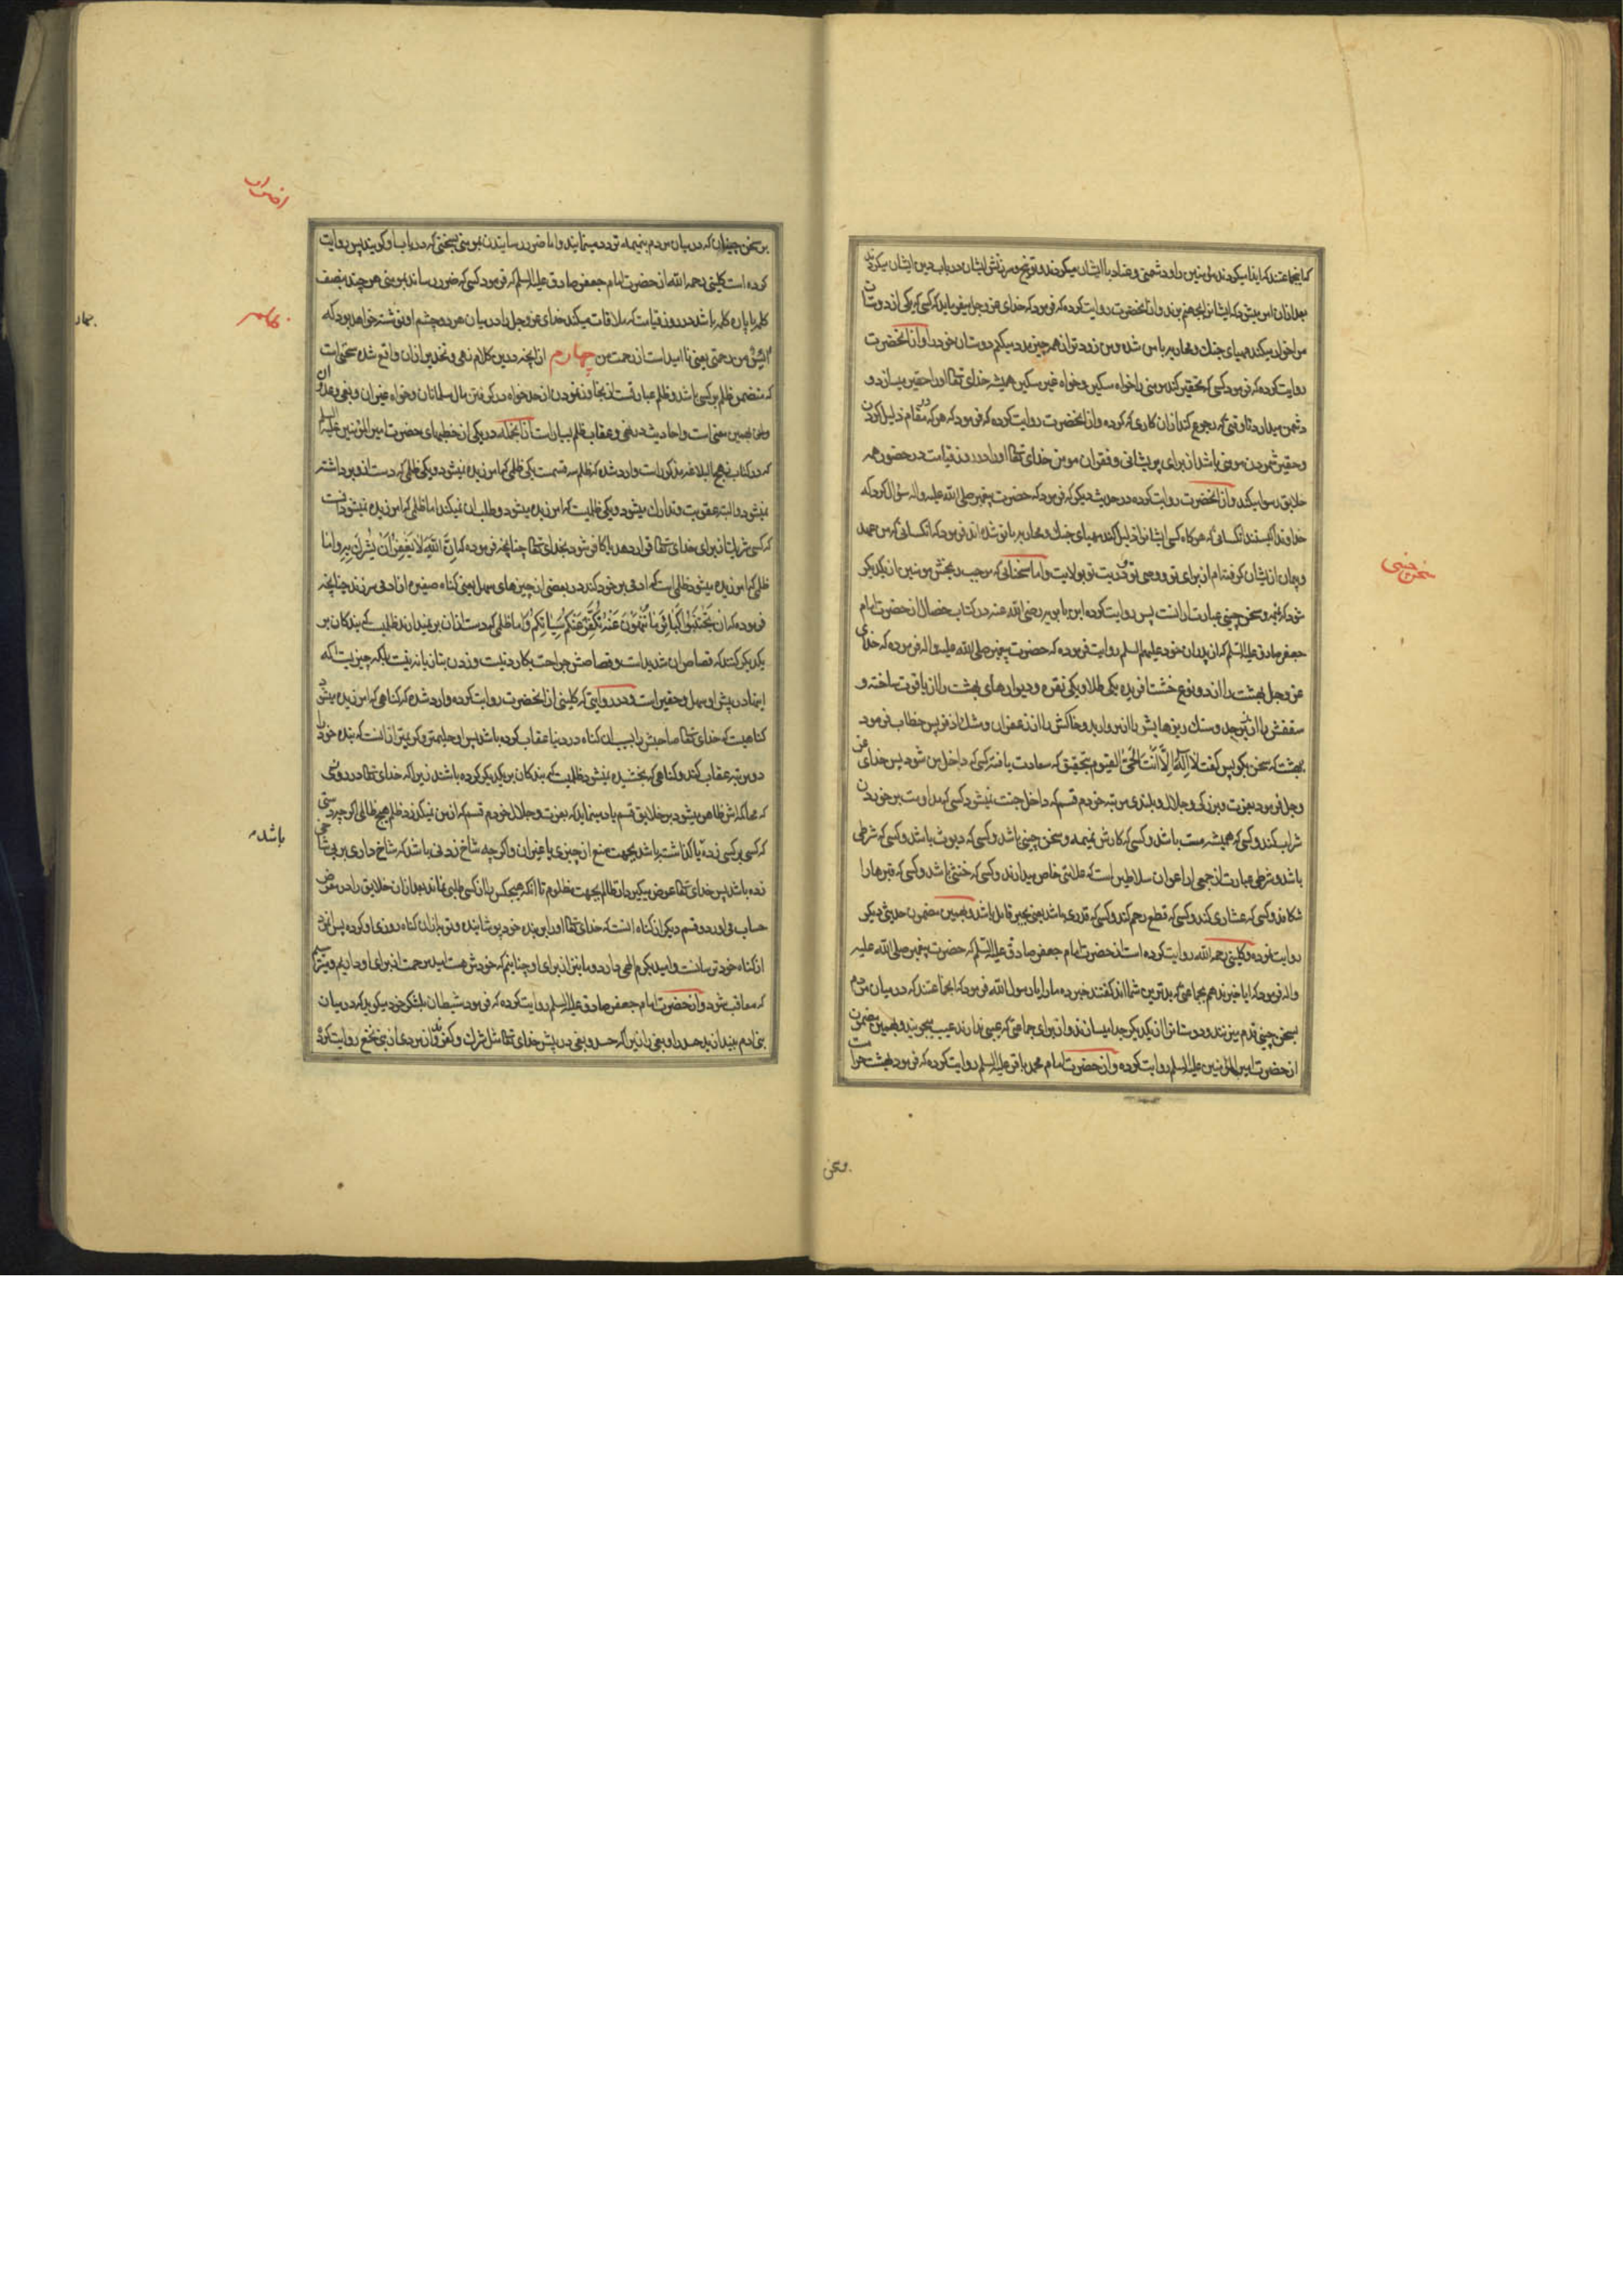 که اینجماعتند که ایذا میکردند مؤمنین را و دشمنی و عناد با ایشان میکردند و توبیخ و سرزنش ایشان در باب دین ایشان میکردند
بعد از ان امر میشود که ایشانرا بجهنم برند و از انحضرت روایت کرده که فرمود که خدای عز و جل میفرماید که کسی که یکی از دوستان
مرا خوار میکند مهیای جنك و محاربه با من شده و من زود تر از همه چیز مدد میکنم دوستان خود را و از انحضرت
روایت کرده که فرمود کسی که تحقیر کند مؤمنی را خواه مسکین و خواه غیر مسکین همیشه خدای تعالی او را حقیر میسازد و
دشمن میدارد تا وقتی که رجوع کند از ان کاری که کرده و از انحضرت روایت کرده که فرمود که هر که در مقام ذلیل کردن
و حقیر شمردن مؤمنی باشد از برای پریشانی و فقر ان مومن خدای تعالی او را در روز قیامت در حضور همه
خلایق رسوا میکند و از انحضرت روایت کرده در حدیث دیگر که فرمود که حضرت پیغمبر صلی الله علیه و اله سؤال کرد که
خداوندا کیستند انکسانی که هر کاه کسی ایشانرا ذلیل کند مهیای جنك و محاربه با تو شده اند فرمود که انکسانی که من عهد
و پیمان از ایشان کرفته ام از برای تو و وصی تو و ذریت تو بولایت و اما سخنانی که موجب رنجش مؤمنین از یکدیکر
شود که نمیمه و سخن چینی عبارت از انست پس روایت کرده ابن بابویه رضی الله عنه در کتاب خصال از حضرت امام
جعفر صادق علیه السلم که از پدران خود علیهم السلم روایت فرموده که حضرت پیغمبر صلی الله علیه و اله فرموده که خدای
عز و جل بهشت را از دو نوع خشت افریده یکی طلا و یکی نقره و دیوارهای بهشت را از یاقوت ساخته و
سقفش را از زبرجد و سنك ریزهایش را از مروارید و خاکش را از زعفران و مشك اذفر پس خطاب فرمود
بهشت که سخن بکو پس کفت لا اله الا انت الحی القیوم بتحقیق که سعادت یافته کسی که داخل من شود پس خدای عز
و جل فرمود بعزت و بزرکی و جلال و بلندی مرتبه خودم قسم که داخل جنت نمیشود کسی که مداومت بر خوردن
شراب کند و کسی که همیشه مست باشد و کسی که کارش نمیمه و سخن چینی باشد و کسی که دیوث باشد و کسی که شرطی
باشد و شرطی عبارت از جمعی از اعوان سلاطین است که علامتی خاص میدارند و کسی که خنثی باشد و کسی که قبرها را
شکافد و کسی که عشاری کند و کسی که قطع رحم کند و کسی که قدری باشد یعنی بجبر قایل باشد و بهمین مضمون حدیثی دیکر
روایت نموده و کلینی رحمه الله روایت کرده است از حضرت امام جعفر صادق علیه السلم که حضرت پیغمبر صلی الله علیه
و اله فرمود که ایا خبر ندهم بجماعتی که بدترین شما اند کفتند خبر ده ما را یا رسول الله فرمود که انجماعتند که در میان مردم
بسخن چینی قدم میزنند و دوستانرا از یکدیکر جدا میسازند و از برای جماعتی که عیبی ندارند عیب میجویند و بهمین مضمون
از حضرت امیر المؤمنین علیه السلم روایت کرده و از حضرت امام محمد باقر علیه السلم روایت کرده که فرمود بهشت حرامست
سخن چینی
بر سخن چینان که در میان مردم بنمیمه تردد مینمایند و اما ضرر رسانیدن بمومنی بسخنی که در باب او کویند پس روایت
کرده است کلینی رحمه الله از حضرت امام جعفر صادق علیه السلم که فرمود کسی که ضرر رساند بمومنی هر چند بنصف
کلمه یا پاره کلمه باشد در روز قیامت که ملاقات میکند خدای عز و جل را در میان هر دو چشم او نوشته خواهد بود که
ایس من رحمتی یعنی نا امید است از رحمت من چهارم از انچه در این کلام نهی و تحذیر از ان واقع شده سخنی است
که متضمن ظلم بر کسی باشد و ظلم عبارتست از تجاوز نمودن از حد خواه در کرفتن مال مسلمانان و خواه غیر ان و بغی و عدوان
و بهمین معنی است و احادیث در نهی و عقاب ظلم بسیار است از انجمله در یکی از خطبهای حضرت امیر المؤمنین علیه السلم
که در کتاب نهج البلاغه مذکور است وارد شده که ظلم سه قسمست یکی ظلمی که امرزیده نمیشود و یکی ظلمی که دست از و برداشته
نمیشود و البته عقوبت و تدارك میشود و یکی ظلمیست که امرزیده میشود و طلب ان نمیکند اما ظلمی که امرزیده نمیشود انست
که کسی شریك از برای خدای تعالی قرار دهد یا کافر شود بخدای تعالی چنانچه فرموده که ان الله لا یغفر ان یشرك به و اما
ظلمی که امرزیده میشود ظلمی است که ادمی بر خود کند در بعضی از چیزهای سهل یعنی کناه صغیره از ادمی سر زند چنانچه
فرموده که ان تجتنبوا کبائر ما تنهون عنه نکفر عنکم سیئاتکم و اما ظلمی که دست از ان بر نمیدارند ظلمیست که بندکان بر
یکدیکر کنند که قصاص ان شدید است و قصاصش جراحت بکارد نیست و زدن بتازیانه نیست بلکه چیزیست که
اینها در پیش او سهل و حقیر است و در روایتی که کلینی از انحضرت روایت کرده وارد شده که کناهی که امرزیده میشود
کناهیست که خدای تعالی صاحبش را بسبب ان کناه در دنیا عقاب کرده باشد پس او حلیمتر و کریمتر از انست که بنده خود را
دو مرتبه عقاب کند و کناهی که بخشیده نمیشود ظلمیست که بندکان بر یکدیکر کرده باشند زیرا که خدای تعالی در روزی
که محاکمه اش ظاهر میشود بر خلایق قسم یاد مینماید که بعزت و جلال خودم قسم که از من نمیکذرد ظلم هیچ ظالمی اکر چه دستی
که کسی بر کسی زده یا کذاشته باشد بجهت منع از چیزی یا غیر ان و اکر چه شاخ زدنی باشد که شاخ داری بر بی شاخی
زده باشد پس خدای تعالی عوض میکیرد از ظالم بجهت مظلوم تا انکه هیچکس را از کسی طلبی نماند بعد از ان خلایق را در معرض
حساب می اورد و قسم دیکر از کناه انست که خدای تعالی او را بر بنده خود پوشانیده و توبه از ان کناه روزی او کرده پس او
از کناه خود ترسانست و امید بکرم الهی دارد و ما نیز از برای او چنانیم که خودش هست امید رحمت از برای او داریم و میترسیم
که معاقب شود و از حضرت امام جعفر صادق علیه السلم روایت کرده که فرمود شیطان بلشکر خود میکوید که در میان
بنی ادم بیندازید حسد و بغی را زیرا که حسد و بغی در پیش خدای تعالی مثل شرك و کفر است و از مردی از بنی نخع روایت کرده
ظلم
باشد